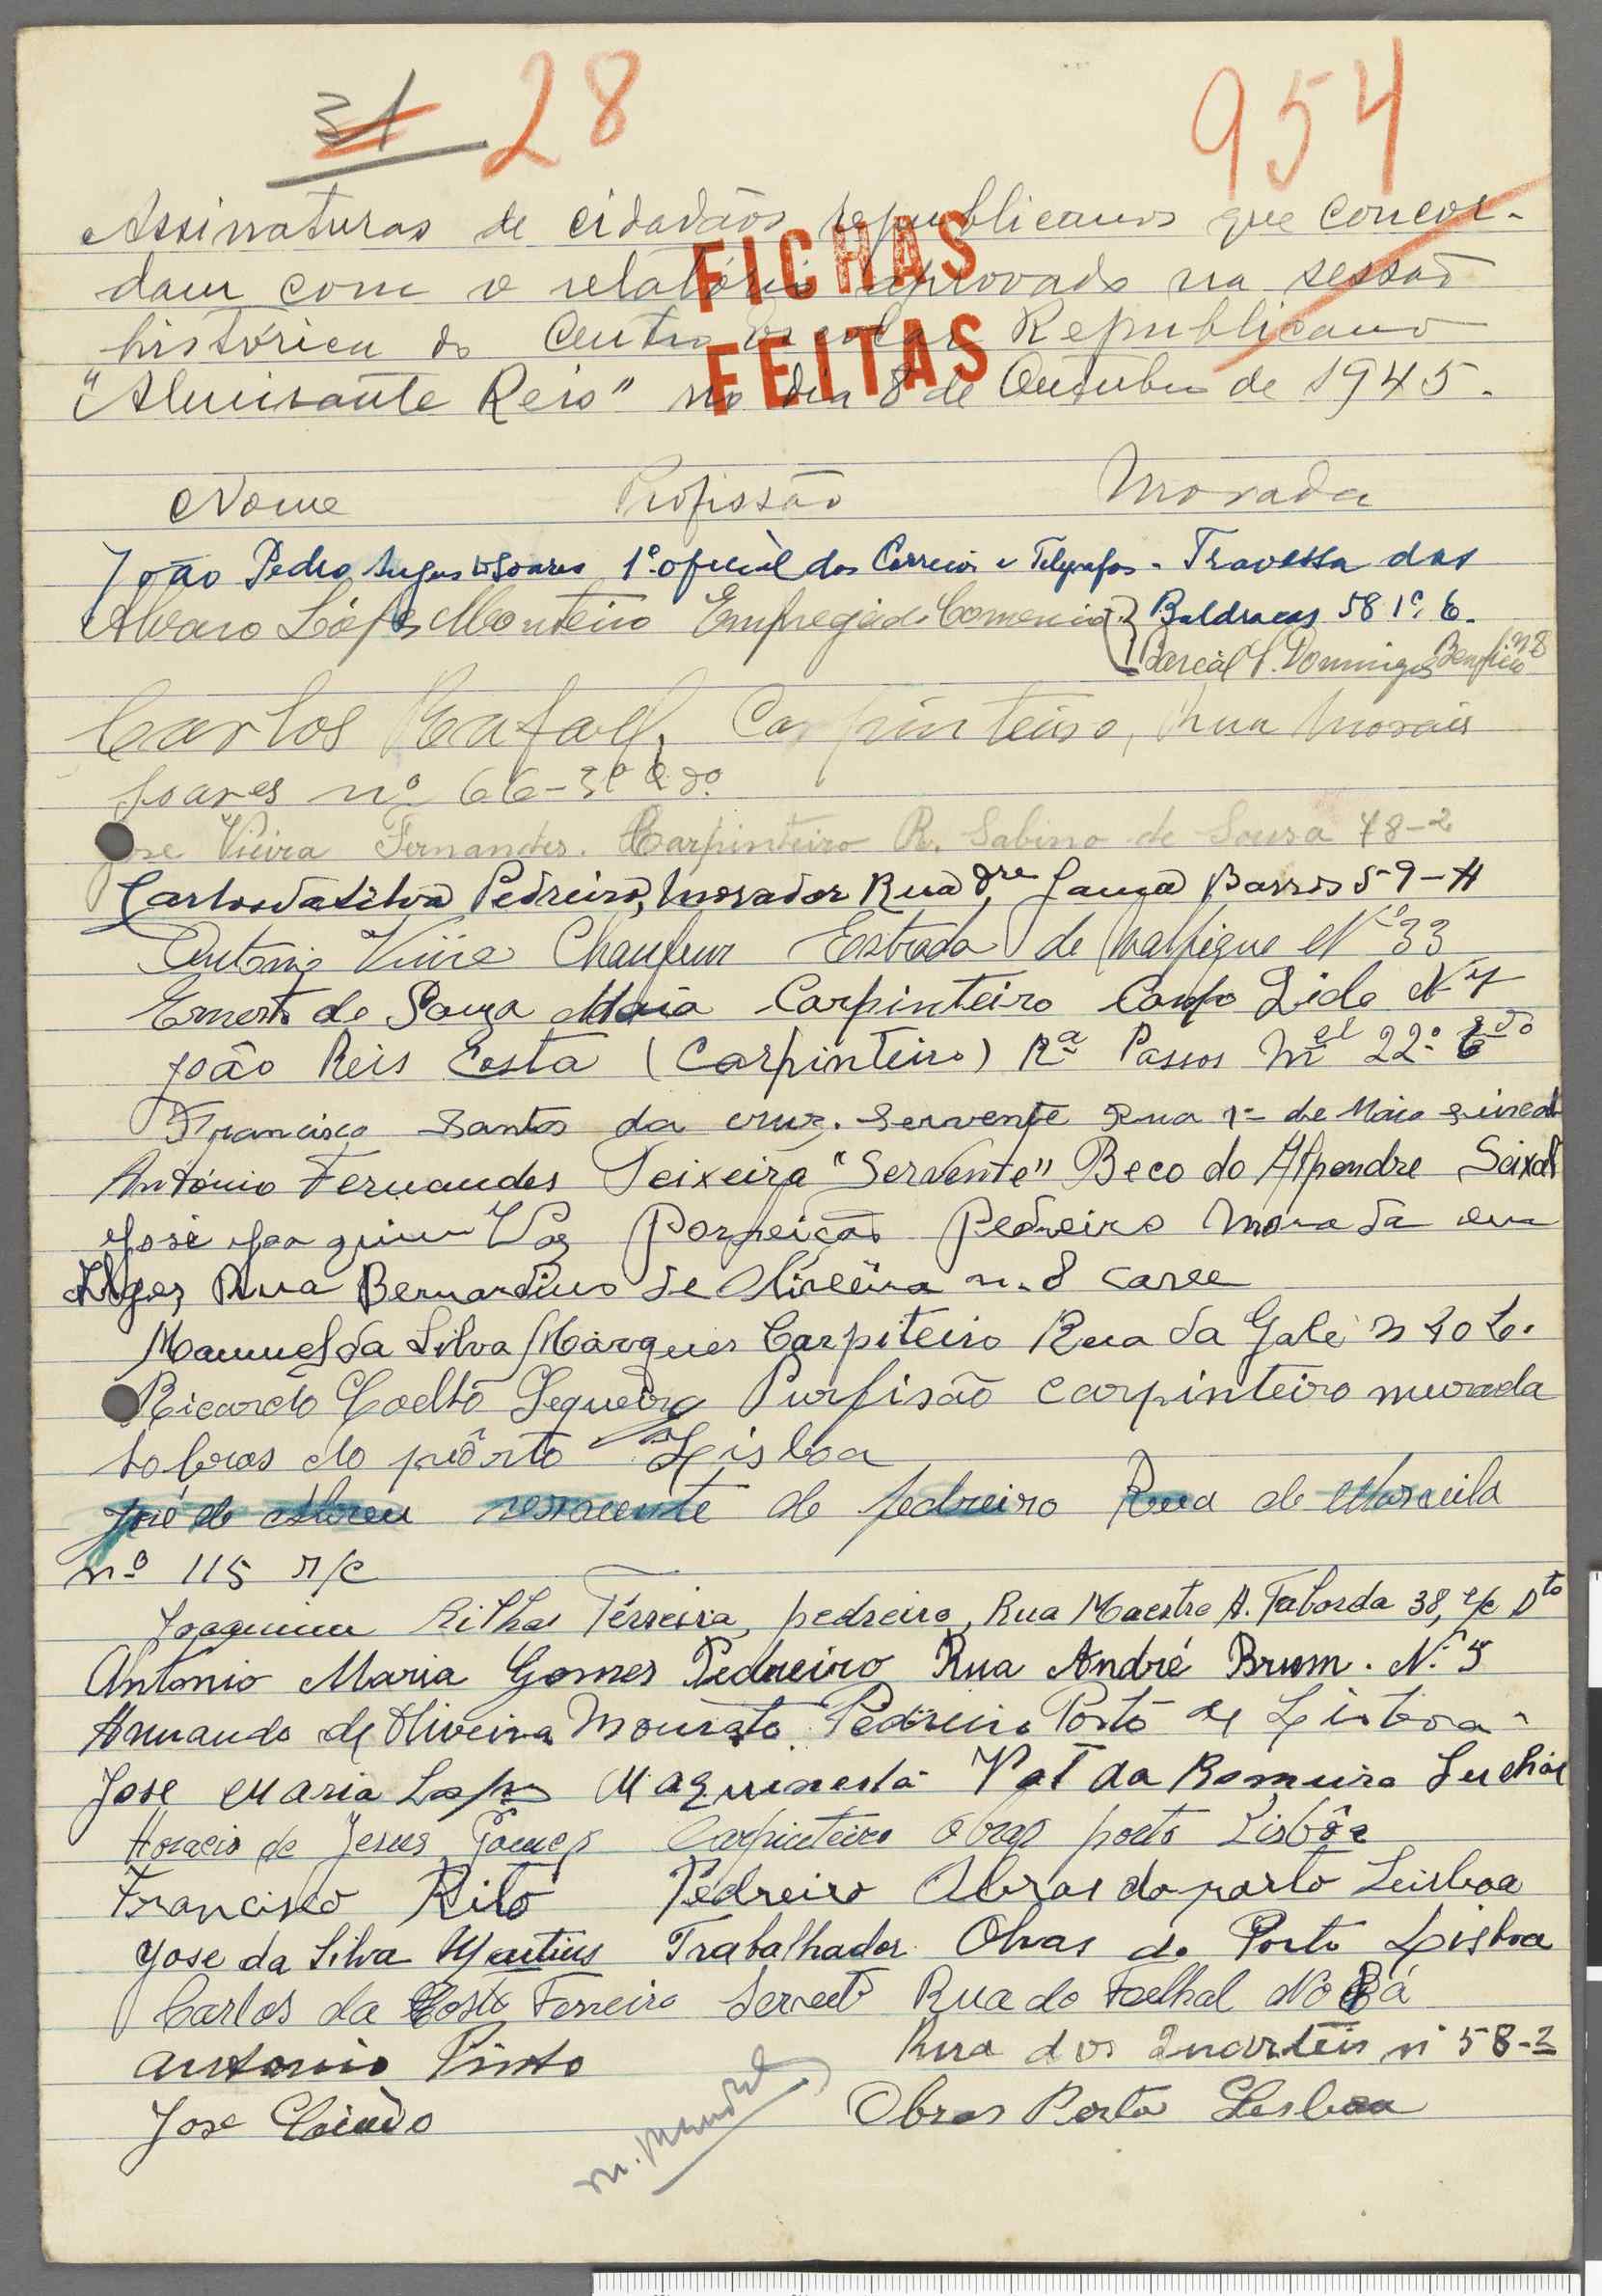 31 28 954
Assinaturas de cidadãos republicanos que concor-
dam com o relatório aprovado na sessão
FICHAS
histórica do Centro Escolar Republicano
FEITAS
"Almirante Reis" no dia 8 de Outubro de 1945.
Nome Profissão Morada
João Pedro Augusto Soares 1º oficial dos Correios e Telegrafos - Travessa das
Alvaro Lopes Monteiro Empregado Comercial Baldracas 58 1º E.
S. Domingos Benfica nº 8
Carlos Rafael, Carpinteiro, Rua Morais
Soares nº 66-3º
José Vieira Fernandes. Carpinteiro R. Sabino de Sousa 48-2
Carlos da Silva Pedreiro, Morador Rua Barros 59-A
Antonio Chaufeur Estrada de Malpique Nº 33
Ernesto de Souza Maia Carpinteiro Nº 7
João Reis Costa (Carpinteiro) Rª Passos Mel 22º
Francisco Santos da cruz. Servente Rua 1º de Maio
António Fernandes Teixeira "Servente" Beco do Alpendre Seixal
José Joaquim Vaz Pedreiro Morada em
Algés Rua Bernardino de Oliveira n. 8 cave
Manuel da Silva Marques Carpiteiro Rua da Galé
Ricardo Coelho Sequeira Purfisão carpinteiro murada
do pôrto Lisboa
José de Abreu servente de pedreiro Rua de Marvila
nº 115 r/c
Joaquim Ferreira, pedreiro, Rua Maestro A. Taborda 38, r/c Dto
Antonio Maria Gomes Pedreiro Rua André Brum. Nº 5
Armando de Oliveira Mourato Pedreiro Porto de Lisboa
Jose Maria Lopes Maquinesta da Romeira
Horacio de Jesus Gomes Carpinteiro obras porto Lisbôa
Francisco Rito Pedreiro Obras do porto Leisboa
Jose da Silva Martins Trabalhador Obras do Porto Lisboa
Carlos da Costa Ferreira Rua do Faelhal
Antonio Pinto Rua dos Quarteis nº 58-2
Jose Obras Porto Lesboa